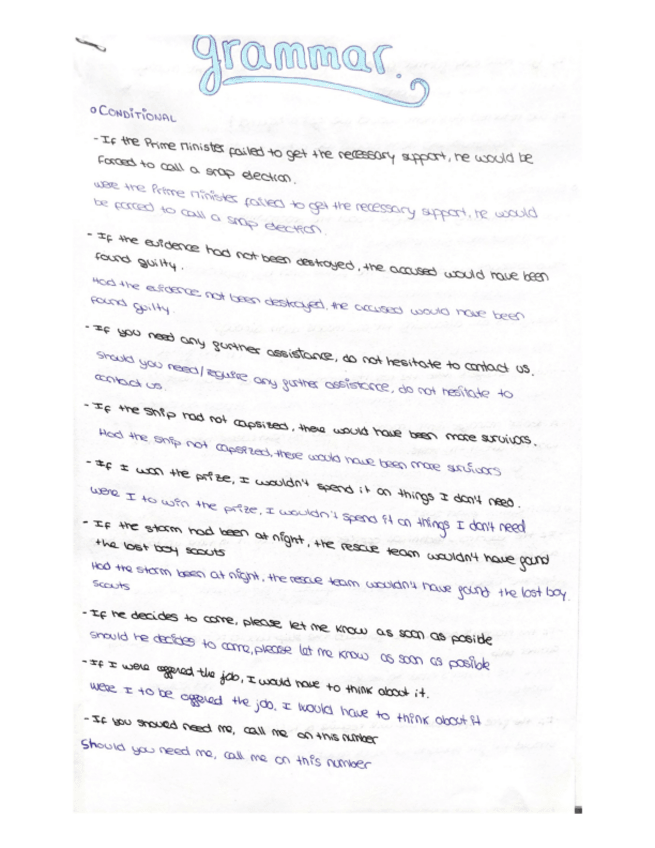 grammar.
CONDITIONAL
- If the Prime Minister failed to get the necessary support, he would be
forced to call a snap election.
Were the Prime Minister failed to get the necessary support, he would
be forced to call a snap election.
- If the evidence had not been destroyed, the accused would have been
found guilty.
Had the evidence not been destroyed, the accused would have been
found guilty.
- If you need any further assistance, do not hesitate to contact us.
Should you need/require any further assistance, do not hesitate to
contact us.
- If the ship had not capsized, there would have been more survivors.
Had the ship not capsized, there would have been more survivors
- If I won the prize, I wouldn't spend it on things I don't need.
were I to win the prize, I wouldn't spend it on things I don't need
- If the storm had been at night, the rescue team wouldn't have found
the lost boy scouts
Had the storm been at night, the rescue team wouldn't have found the lost boy
scouts
- If he decides to come, please let me know as soon as posible
Should he decides to come, please let me know as soon as posible
- If I were offered the job, I would have to think about it.
were I to be offered the job, I would have to think about it
- If you should need me, call me on this number
Should you need me, call me on this number